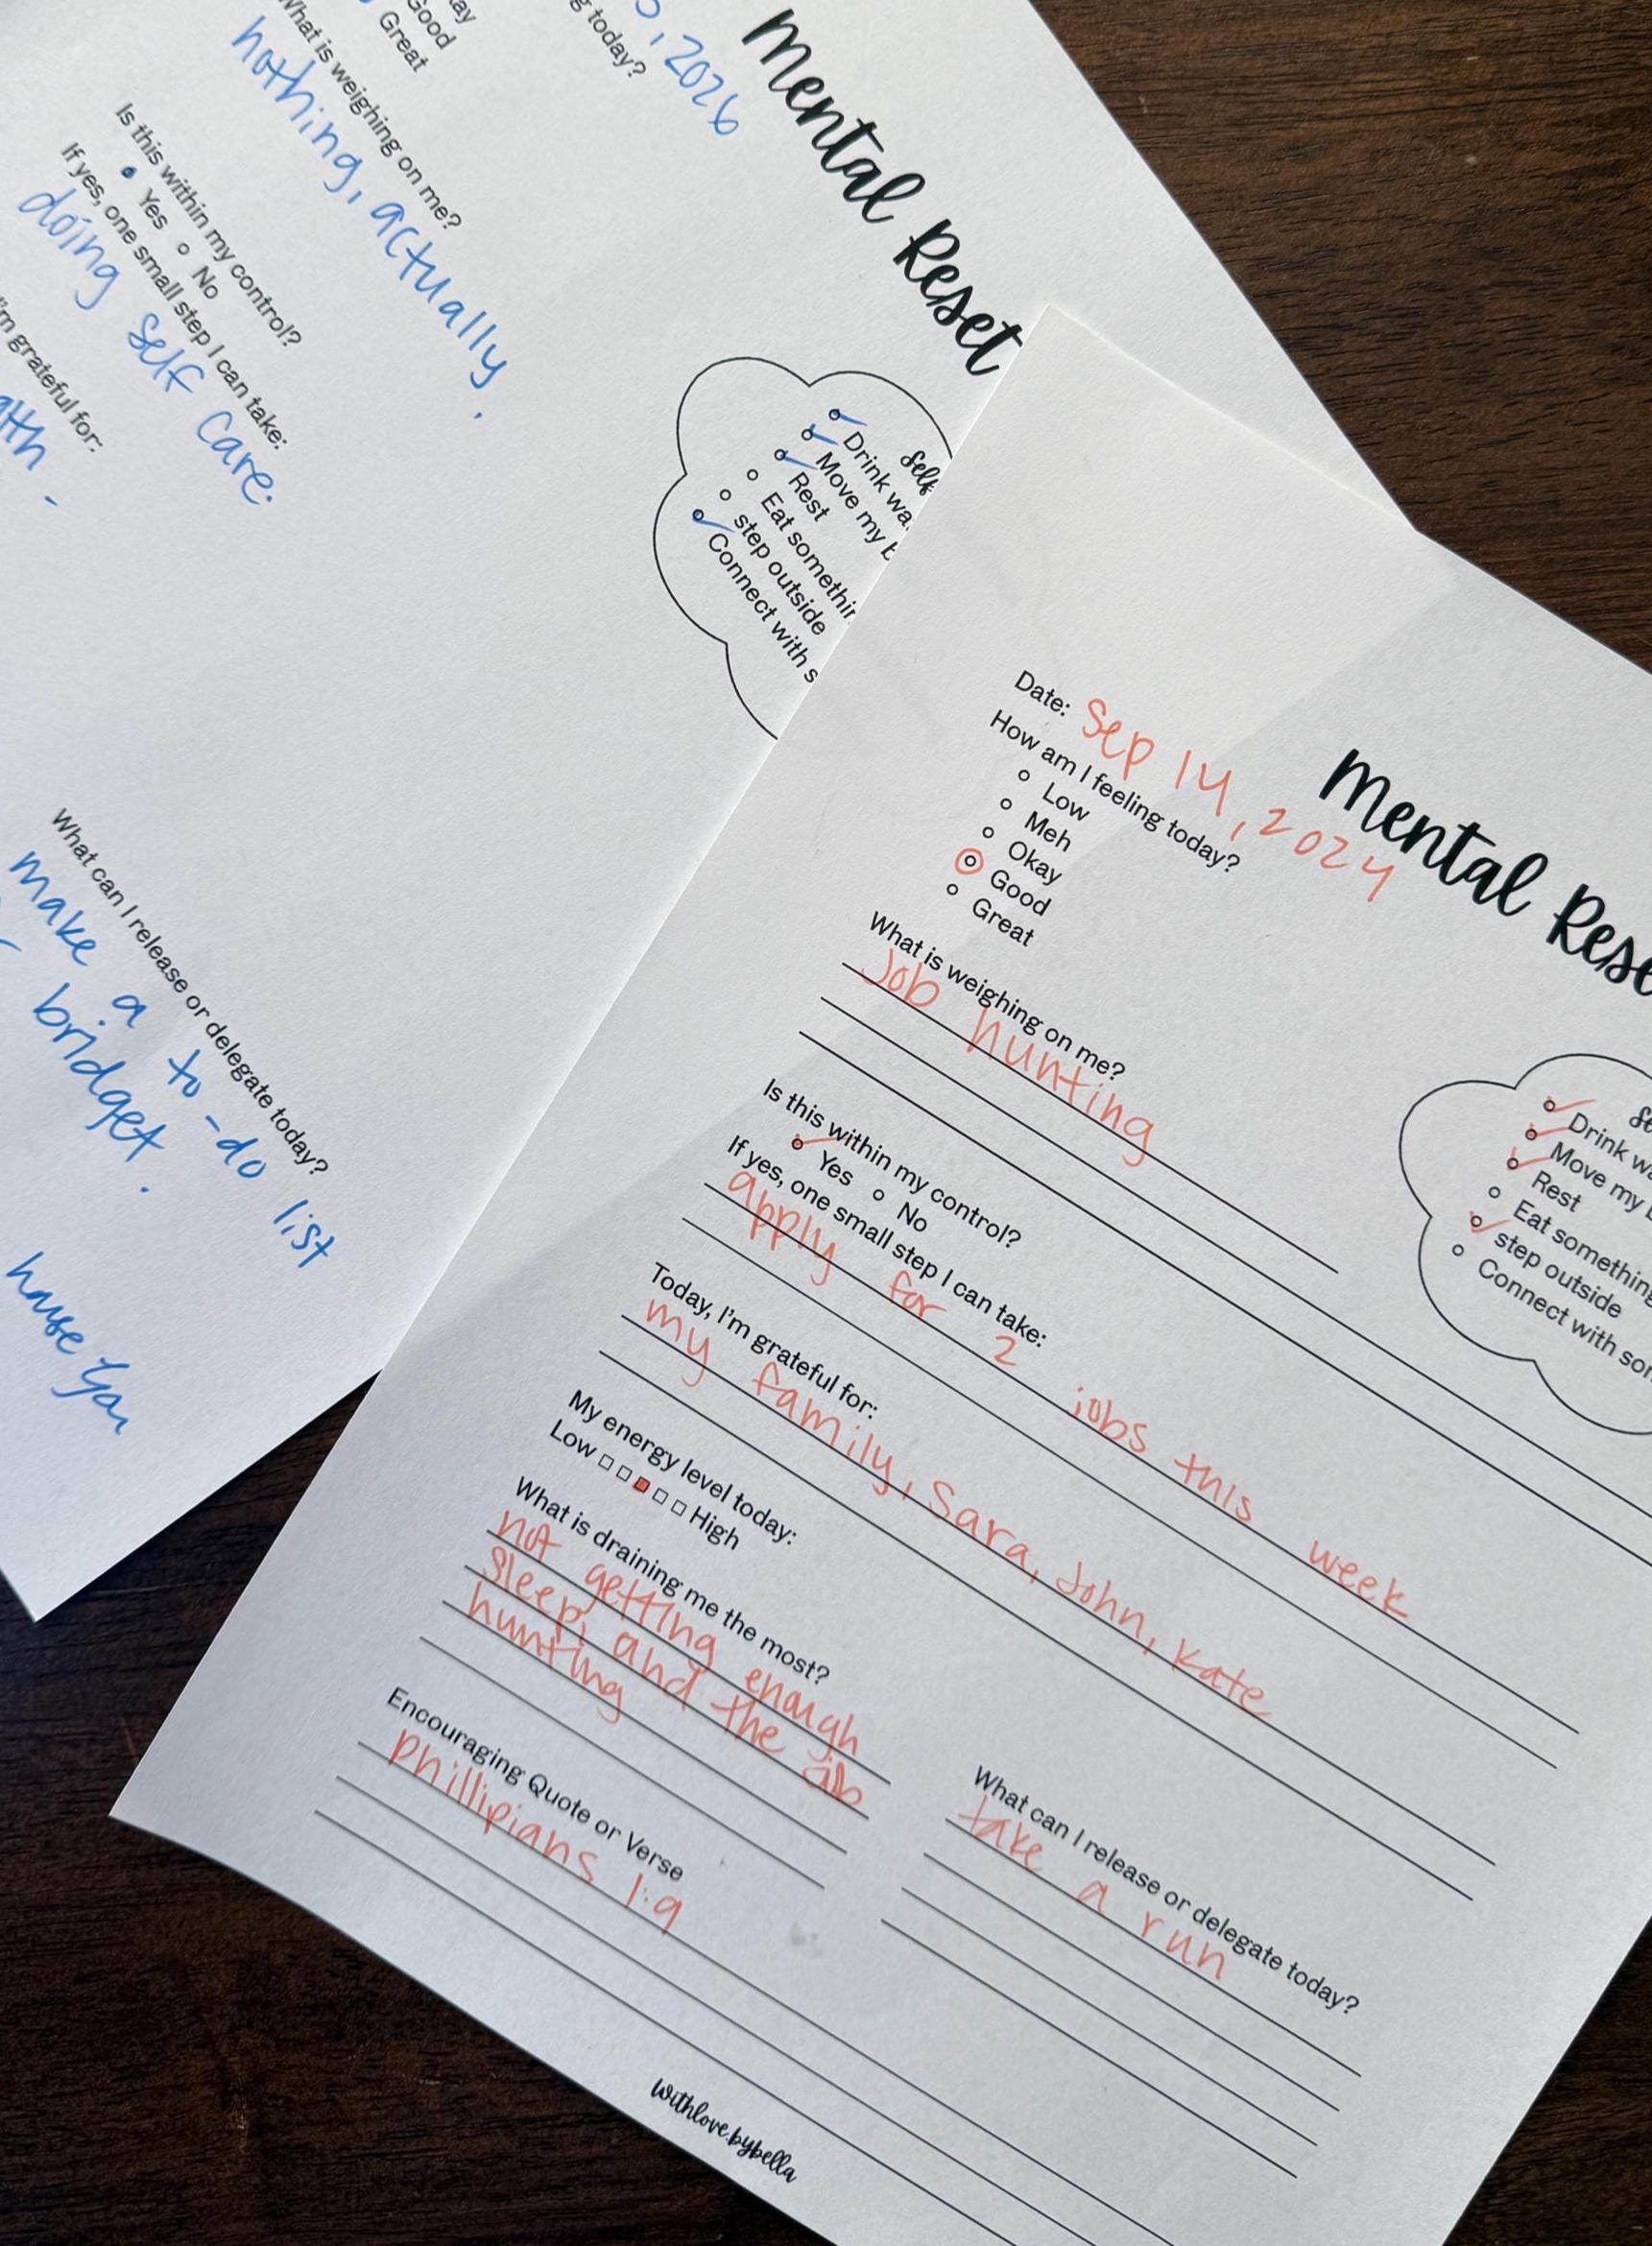 Mental Reset
, 2026
g today?
ay
Good
Great
What is weighing on me?
nothing, actually.
Is this within my control?
Yes No
If yes, one small step I can take:
doing self care.
I'm grateful for:
Self
Drink wa
Move my b
Rest
Eat somethin
step outside
Connect with s
What can I release or delegate today?
make a to-do list
bridget.
Mental Rese
Date: Sep 14, 2024
How am I feeling today?
Low
Meh
Okay
Good
Great
What is weighing on me?
Job hunting
Is this within my control?
Yes No
If yes, one small step I can take:
apply for 2 jobs this week
Today, I'm grateful for:
my family, Sara, John, Kate
My energy level today:
Low High
What is draining me the most?
not getting enough
sleep, and the job
hunting
Encouraging Quote or Verse
Phillipians 1:9
Se
Drink wa
Move my b
Rest
Eat something
step outside
Connect with som
What can I release or delegate today?
take a run
withlove.bybella